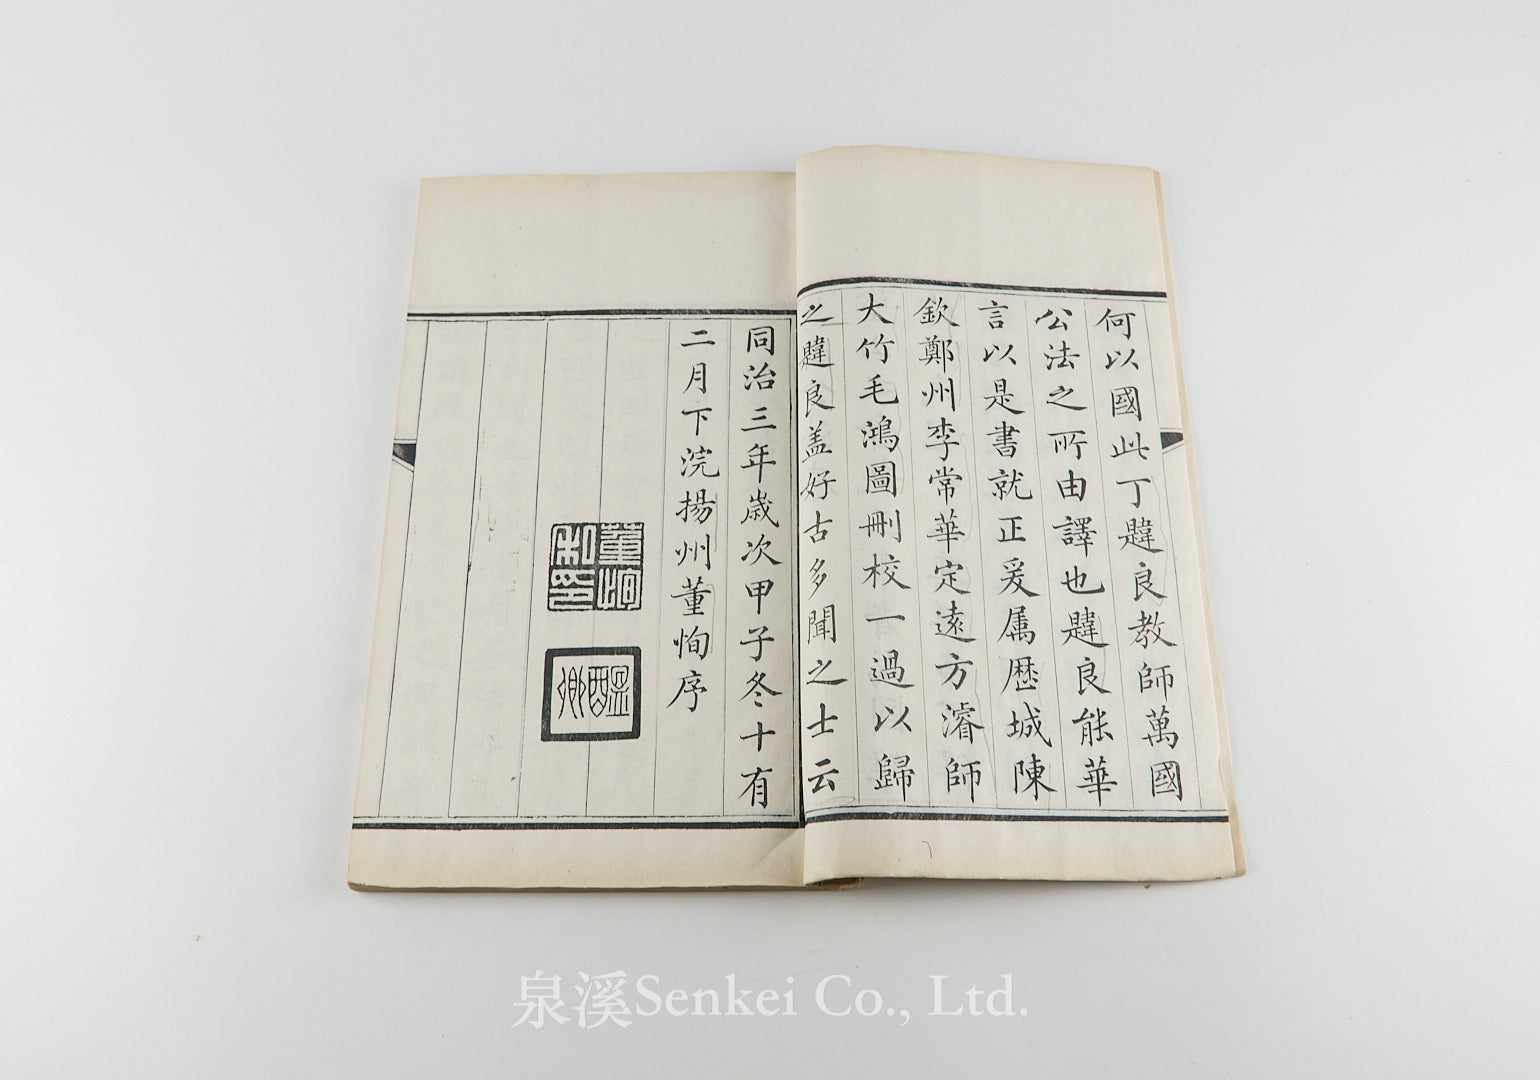 何以國此丁韙良教師萬國
公法之所由譯也韙良能華
言以是書就正爰属歴城陳
欽鄭州李常華定遠方濬師
大竹毛鴻圖刪校一過以歸
之韙良盖好古多聞之士云
同治三年歲次甲子冬十有
二月下浣揚州董恂序
董恂
私印
醖卿
泉溪Senkei Co., Ltd.